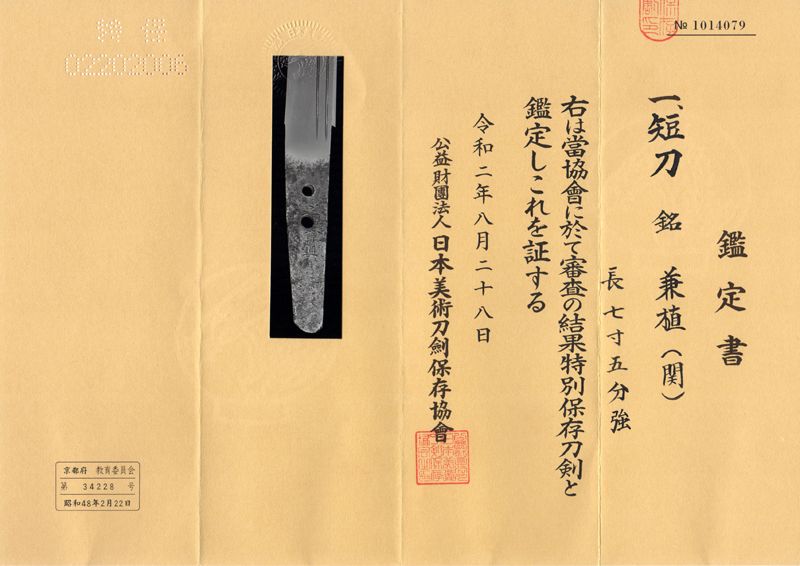 № 1014079
鑑定書
一、短刀 銘 兼植(関)
長七寸五分強
右は當協會に於て審査の結果特別保存刀剣と
鑑定しこれを証する
令和二年八月二十八日
公益財團法人日本美術刀劍保存協會
02202006
京都府 教育委員会
第 34228 号
昭和48年2月22日